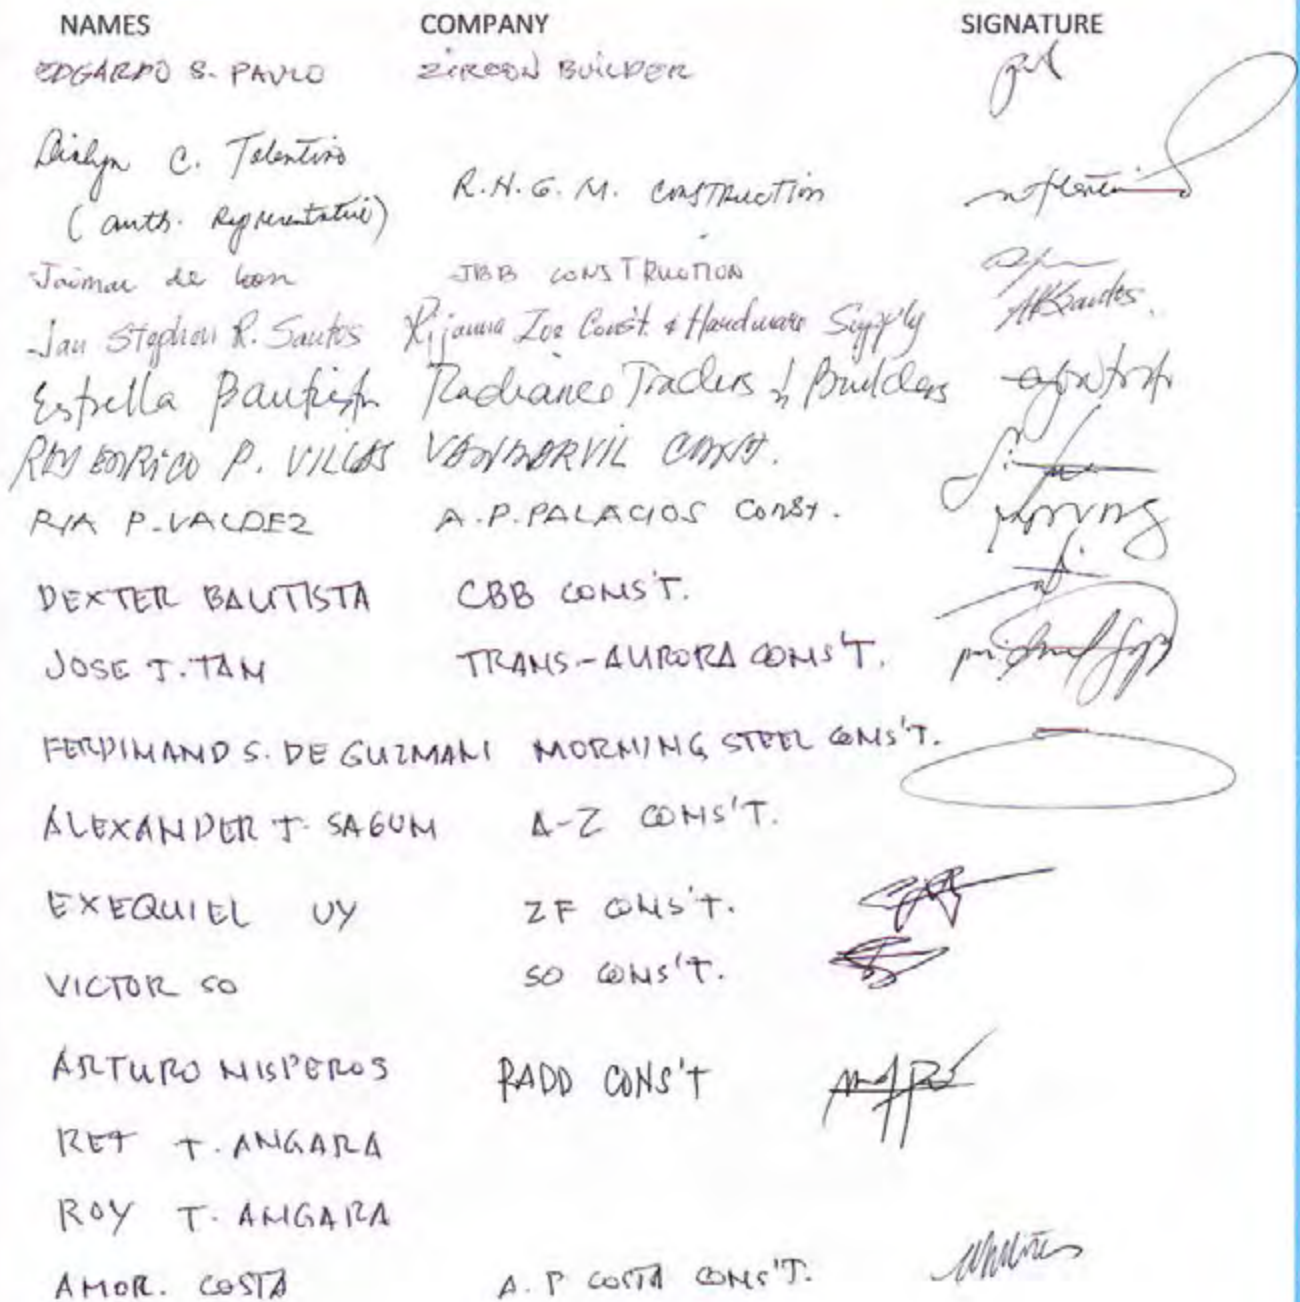 NAMES COMPANY SIGNATURE
EDGARDO S. PAULO ZIRCON BUILDER
C. Tolentino
(auth. Representative) R.H.G.M. CONSTRUCTION
Jaimar de Leon JBB CONSTRUCTION
Jan Stephen R. Santos Rijanna Zoe Const. & Hardware Supply
Estrella Bautista Radiance Traders & Builders
P. VILLAS VANMARVIL CONST.
RIA P. VALDEZ A.P. PALACIOS CONST.
DEXTER BAUTISTA CBB CONS'T.
JOSE T. TAM TRANS-AURORA CONS'T.
FERDINAND S. DE GUZMAN MORNING STEEL CONS'T.
ALEXANDER T. SAGUM A-Z CONS'T.
EXEQUIEL UY ZF CONS'T.
VICTOR SO SO CONS'T.
ARTURO NISPEROS RADD CONS'T
REF T. ANGARA
ROY T. ANGARA
AMOR. COSTA A.P COSTA CONS'T.